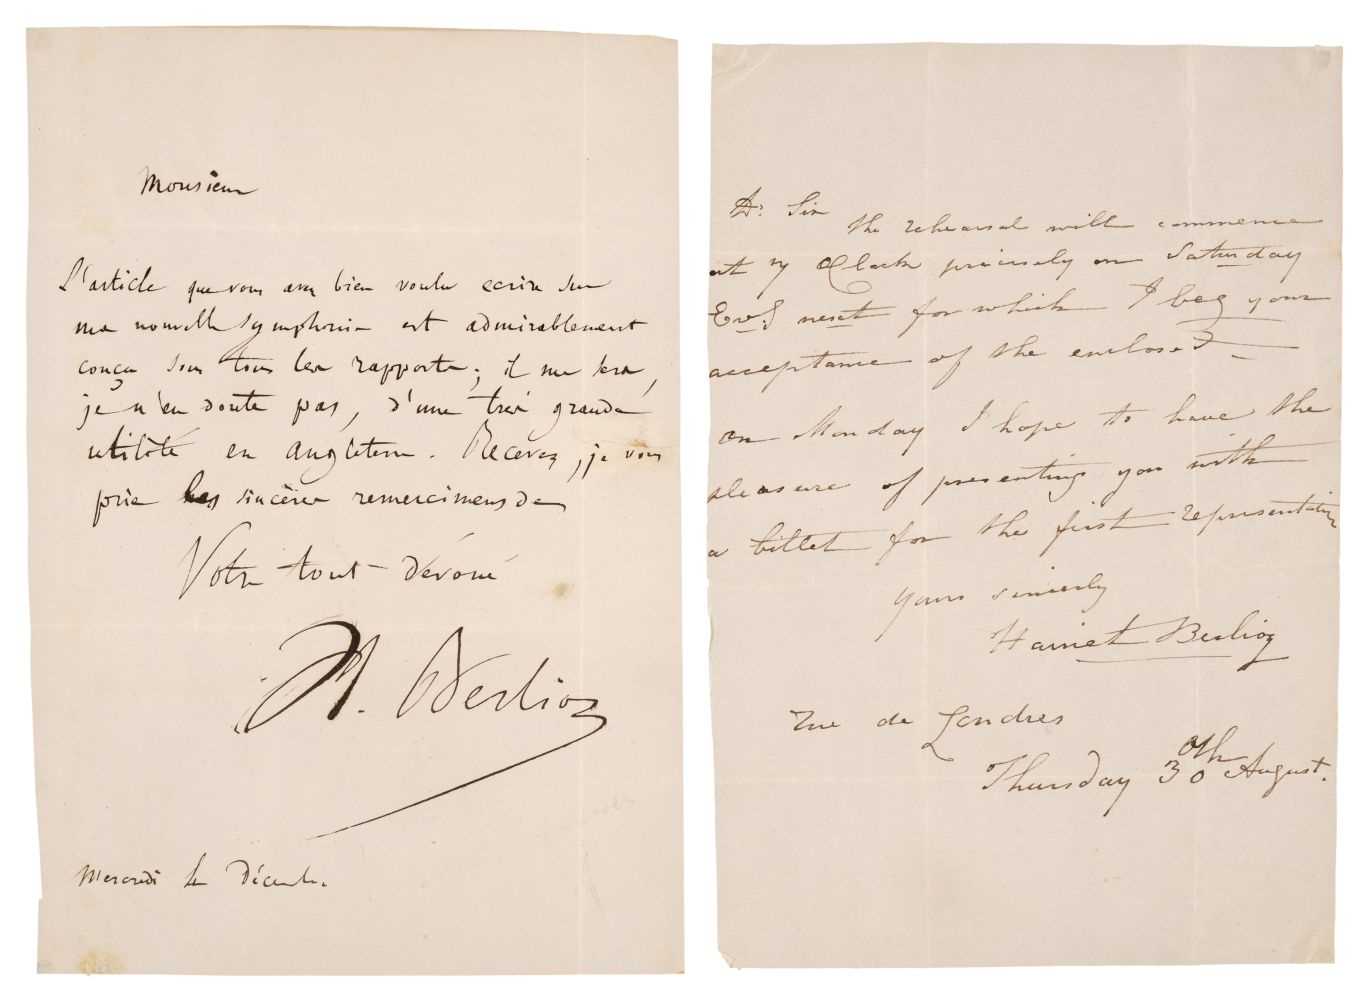 Monsieur
L'article que vous avez bien voulu ecrire sur
ma nouvelle symphonie est admirablement
conçu sous tous les rapports; il me sera,
je n'en doute pas, d'une très grande
utilité en angleterre. Recevez, je vous
prie les sincères remercimens de
Votre tout dévoué
H. Berlioz
Mercredi Décembre
Dr Sir the rehearsal will commence
at 7 Clock precisely on Saturday
Evg next for which I beg your
acceptance of the enclosed
On Monday I hope to have the
pleasure of presenting you with
a billet for the first representation
Yours sincerly
Harriet Berlioz
Rue de Londres
Thursday 30th August.